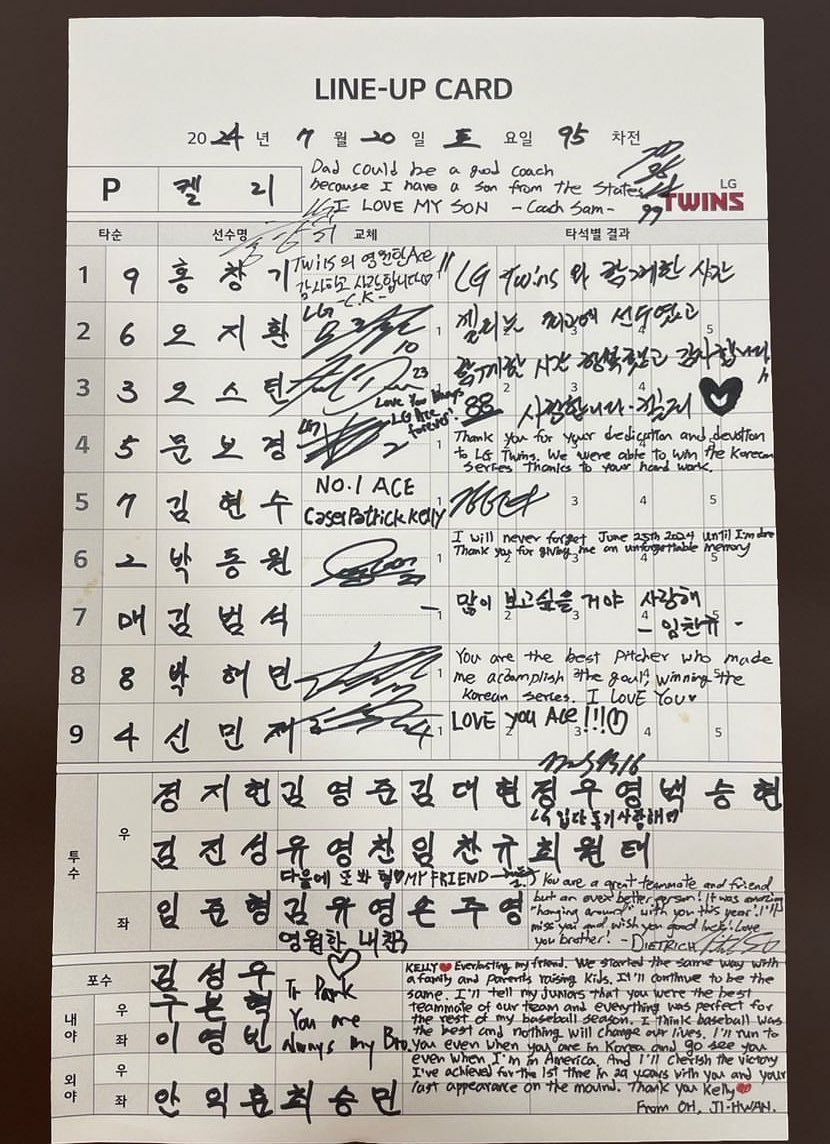 LINE-UP CARD
2024 년 7 월 20 일 토 요일 95 차전
P 켈 리
Dad could be a good coach
because I have a son from the States
I LOVE MY SON -Coach Sam-
99
LG
TWINS
타순 선수명 교체 타석별 결과
1 9 홍 창 기
Twins의 영원한 Ace
감사하고 사랑합니다♡
-C.K-
LG Twins 와 함께한 시간
2 6 오 지 환
LG
10
1 2 3 4 5
켈리는 최고의 선수였고
3 3 오 스 틴
23
Love You Always
LG Ace
forever!
함께한 시간 행복했고 감사합니다
88 사랑합니다-
4 5 문 보 경
2
Thank you for your dedication and devotion
to LG Twins. We were able to win the Korean
series thanks to your hard work.
5 7 김 현 수
NO.1 ACE
Casey Patrick Kelly
1 3 4 5
6 2 박 동 원
I will never forget June 25th 2024 until I'm done
Thank you for giving me an unforgettable memory
7 매 김 범 석
많이 보고싶을 거야 사랑해
- 임찬규 -
8 8 박 해 민
You are the best pitcher who made
me accomplish the goal, winning the
Korean series. I LOVE YOU♥
9 4 신 민 재
4
LOVE you Ace!!!
투수
우
정 지 헌 김 영 준 김 대 현 정 우 영 백 승 현
LG 입단 동기 사랑해
김 진 성 유 영 찬 임 찬 규 최 원 태
다음에 또 봐 형♡ MY FRIEND
좌
임 준 형 김 유 영 손 주 영
영원한 내 친구
You are a great teammate and friend
but an even better person! It was amazing
"hanging around" with you this year! I'll
miss you and wish you good luck! Love
you brother! - DIETRICH
포수 김 성 우
내야 우 구 본 혁
좌 이 영 빈
외야 우
좌 안 익 훈 최 승 민
To Park
You are
always my Bro.
KELLY❤ Everlasting my friend. We started the same way with
a family and parents raising kids. It'll continue to be the
same. I'll tell my juniors that you were the best
teammate of our team and everything was perfect for
the rest of my baseball season. I think baseball was
the best and nothing will change our lives. I'll run to
you even when you are in Korea and go see you
even when I'm in America. And I'll cherish the victory
I've achieved for the 1st time in 29 years with you and your
last appearance on the mound. Thank you Kelly❤
From OH, JI-HWAN.